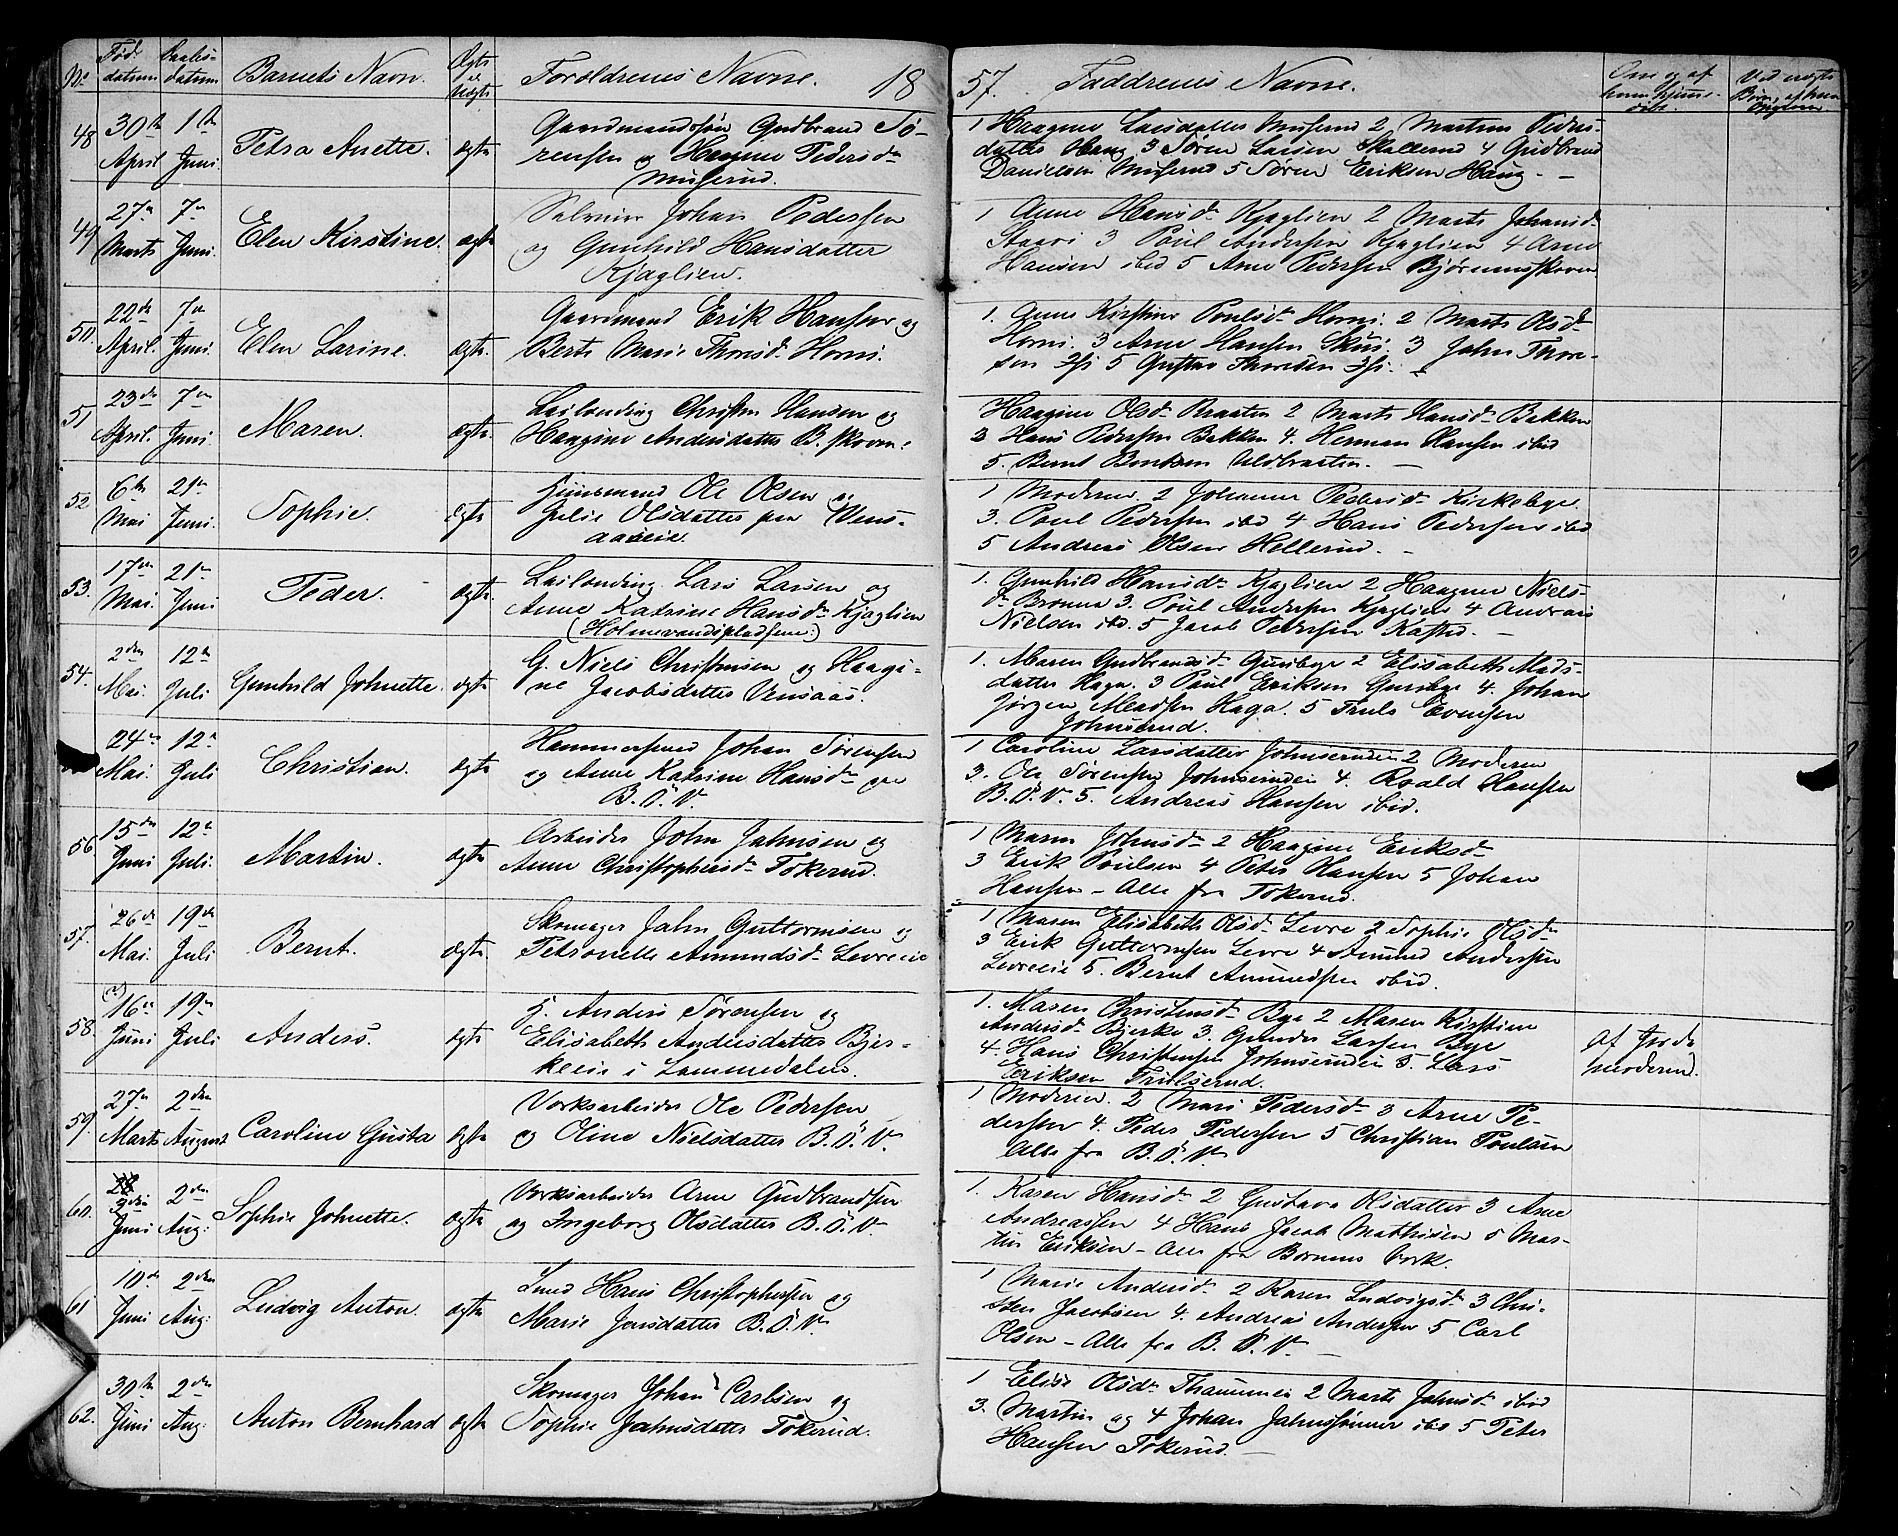 No. Fød. datum Daabs-datum Barnets Navn. Ægte el. Uægte Foreldrenes Navne. 18
57. Faddrenes Navne. Om og af hvem hjemme-døbt. Ved uægte
48 30te April 1te Juni. Petra Anette. ægte
Gaardmandssøn Gudbrand Sø-
rensen og Haagine Pedersd.
Muserud.
1 Haagine Larsdatter Muserud 2 Martine Peders-
datter Haug 3 Søren Larsen Skallerud 4 Gudbrand
Danielsen Muserud 5 Søren Eriksen Haug. -
49 27 Marts 7 Juni. Elen Kirstine. ægte
Johan Pedersen
og Gunhild Hansdatter
Kjaglien.
1 Anne Hansd. Kjaglien 2 Marte Johansd.
3 Poul Andersen Kjaglien 4 Arne
Hansen ibid 5 Arne Pedersen Bjørumskoven
50. 22de April. 7 Juni. Elen Larine. Ægte.
Gaardmand Erik Hansen og
Berte Marie Thoresd. Horni.
1. Anne Kirstine Poulsd. Horni. 2 Marte Olsd.
Horni. 3 Arne Hansen Skui. 3 John Thore-
sen 5 Gustav Thoresen
51 23de April. 7 Juni. Maren. Ægte.
Leilending Christen Hansen og
Haagine Andersdatter B. skoven.
Haagine Olsd. Braaten 2 Marte Hansd. Bakken
3 Hans Pedersen Bakken 4. Herman Hansen ibid
5. Bernt Berntsen -
52 6te Mai 21 Juni. Sophie. Ægte
Huusmand Ole Olsen og
Julie Olsdatter paa Vens-
aaseie.
1 Moderen. 2 Johanne Pedersd. Kirkebye.
3. Poul Pedersen ibid 4 Hans Pedersen ibid
5 Andreas Olsen Hellerud. -
53. 17 Mai. 21 Juni Peder. ægte.
Leilending Lars Larsen og
Anne Katrine Hansd. Kjaglien
1. Gunhild Hansd. Kjaglien 2 Haagine Niels-
d. Brenna 3. Poul Andersen Kjaglien 4 Andreas
Nielsen ibid. 5 Jacob Pedersen -
54. 2den Mai. 12 Juli Gunhild Johnette. ægte
G. Niels Christensen og Haagi-
ne Jacobsdatter Vensaas.
1. Maren Gudbrandsd. Guriby 2 Elisabeth Mads-
datter Haga. 3 Poul Eriksen Guriby 4. Johan
Jørgen Madsen Haga. 5 Truls Evensen
Johnsrud.
24 Mai. 12 Juli Christian. ægte
Hammersmed Johan Sørensen
og Anne Katrine Hansd. paa
B. O. V.
1 Caroline Larsdatter 2 Moderen
3. Ole Sørensen 4. Roald Hansen
B. O. V. 5. Andreas Hansen ibid.
56 15de Juni 12 Juli. Martin. ægte
Arbeider John Johnsen og
Anne Christophersd. Tokerud.
1 Maren Johnsd. 2 Haagine Eriksd.
3 Erik Poulsen 4 Peter Hansen 5 Johan
Hansen - Alle fra Tokerud.
57. 26de Mai. 19de Juli Bernt. Ægte.
Skomager John Guttormsen og
Petronelle Amundsd. Levreeie
1 Maren Elisabeth Olsd. Levre 2 Sophie Olsd.
3 Erik Guttormsen Levre 4 Amund Andersen
Levreeie 5. Bernt Amundsen ibid.
58. 16 Juni 19 Juli Anders. ægte
H. Anders Sørensen og
Elisabeth Andersdatter Bjer-
keeie i Lommedalen.
1. Maren Christensd. Bye 2 Maren Kirstine
Andersd. Bjerke 3. Gunder Larsen Bye
4. Hans Christensen 5. Lars
Eriksen Trulserud.
Af Jorde
moderen.
59. 27 Marts 2den August Caroline Gusta ægte
Verksarbeider Ole Pedersen
og Oline Nielsdatter B. O. V.
1 Moderen. 2 Mari Pedersd. 3 Arne Pe-
dersen 4. Peder Pedersen 5 Christian Poulsen
Alle fra B. O. V.
60. 3die Juni 2den Aug: Sophie Johnette. ægte
Verksarbeider Arne Gudbrandsen
og Ingeborg Olsdatter B. O. V.
1. Karen Hansd. 2 Gustava Olsdatter 3 Arne
Andreassen 4 Hans Jacob Mathisen 5 Mar-
tin Eriksen - Alle fra Bærums Verk.
61 10de Juni 2den Aug: Ludvig Anton. ægte
Smed Hans Christophersen og
Marie Jensdatter B. O. V.
1 Marie Andersd. 2 Karen Ludvigsd. 3 Chri-
sten Jacobsen 4. Andreas Andersen 5 Carl
Olsen - Alle fra B. O. V. -
62. 30te Juni 2den Aug: Anton Bernhard ægte
Skomager Johan Carlsen og
Sophie Johnsdatter Tokerud.
1 Elise Olsd. 2 Marte Johnsd. ibid
3. Martin og 4 Johan Johnssønner ibid 5 Peter
Hansen Tokerud. -